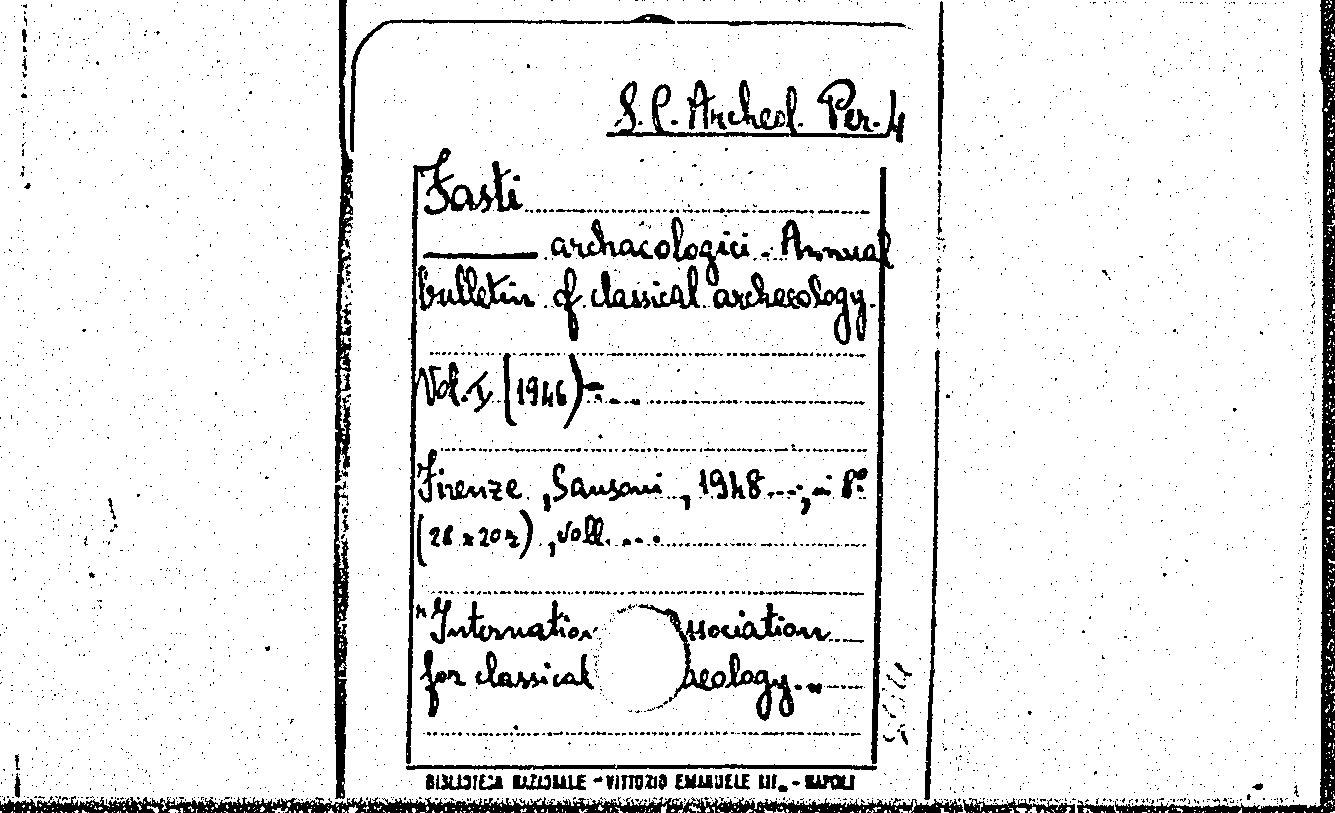 S. P. Archeol. Per. 4
Fasti
archaeologici. Annual
bulletin of classical archaeology.
Vol. I (1946)-....
Firenze, Sansoni, 1948...., in 8°
(28 x 20½), voll. ....
"Internation ssociation
for classical aeology.."
BIBLIOTECA NAZIONALE "VITTORIO EMANUELE III" - NAPOLI